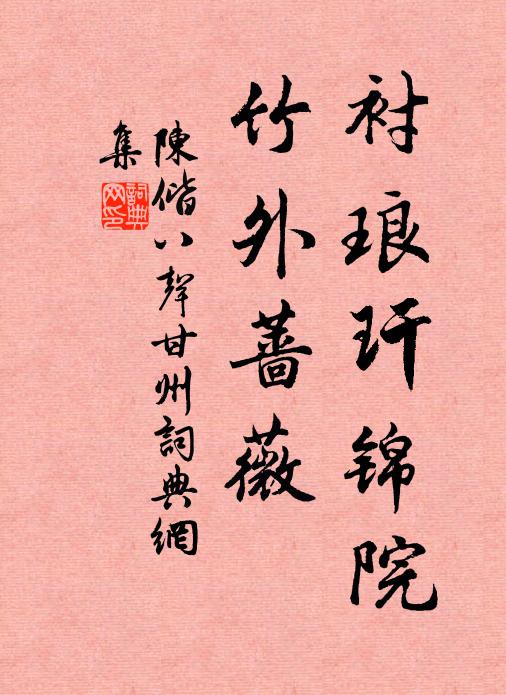 衬琅玕锦院
竹外蔷薇
陳偕八聲甘州詞典網
集
詞典
网印